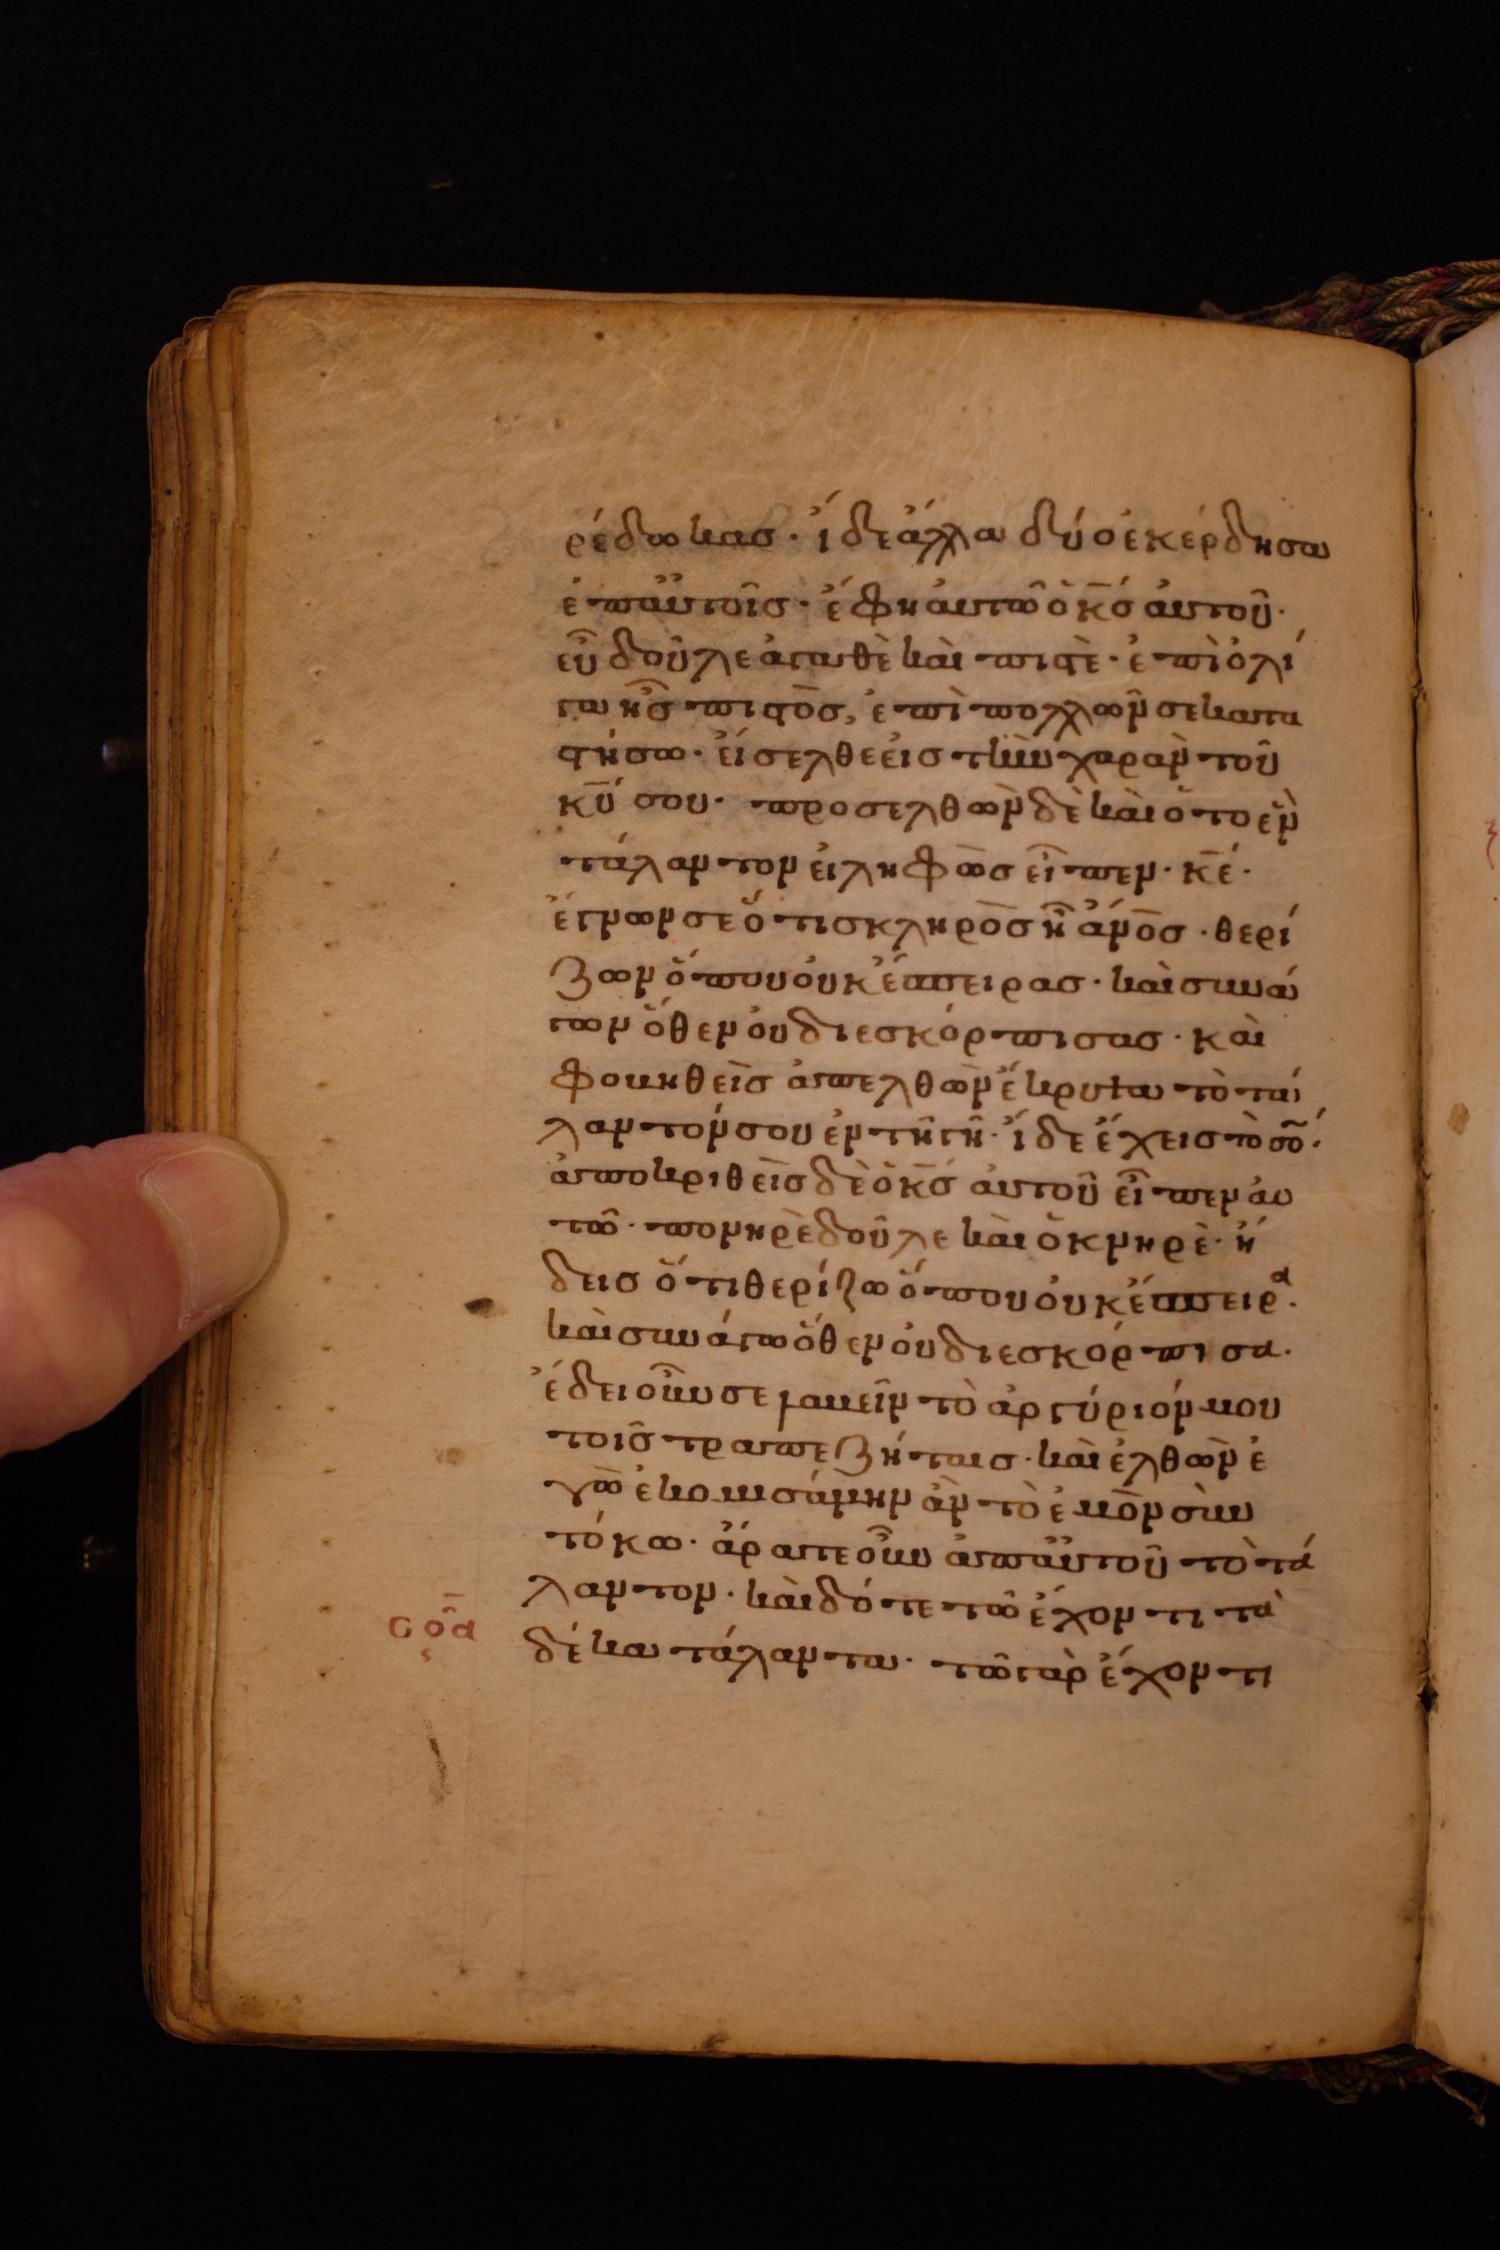 ρέδωκας · ἴδε ἄλλα δύο ἐκέρδησα
ἐπ αὐτοῖς · ἔφη αὐτῶ ὁ κ̅ς αὐτοῦ ·
εὖ δοῦλε ἀγαθὲ καὶ πιστὲ · ἐπὶ ὀλί
γα ἦς πιστὸς, ἐπὶ πολλῶν σε κατα
στήσω · εἴσελθε εἰς τὴν χαρὰν τοῦ
κ̅υ σου · προσελθὼν δὲ καὶ ὁ τὸ ἓν
τάλαντον εἰληφὼς εἶπεν · κ̅ε ·
ἔγνων σε ὅτι σκληρὸς ἦ ἄνος · θερί
ζων ὅπου οὐκ ἔσπειρας · καὶ συνά
γων ὅθεν οὐ διεσκόρπισας · καὶ
φοβηθεὶς ἀπελθὼν ἔκρυψα τὸ τά
λαντόν σου ἐν τῆ γῆ · ἴδε ἔχεις τὸ σὸ ·
ἀποκριθεὶς δὲ ὁ κ̅ς αὐτοῦ εἶπεν αὐ
τῶ · πονηρὲ δοῦλε καὶ ὀκνηρὲ · ἤ
δεις ὅτι θερίζω ὅπου οὐκ ἔσπειρα ·
καὶ συνάγω ὅθεν οὐ διεσκόρπισα ·
ἔδει οὖν σε βαλεῖν τὸ ἀργύριόν μου
τοῖς τραπεζήταις · καὶ ἐλθὼν ἐ
γὼ ἐκομισάμην ἂν τὸ ἐμὸν σὺν
τόκω · ἄρατε οὖν ἀπ αὐτοῦ τὸ τά
λαντον · καὶ δότε τῶ ἔχοντι τὰ
σ̅ο̅α
δέκα τάλαντα · τῶ γὰρ ἔχοντι